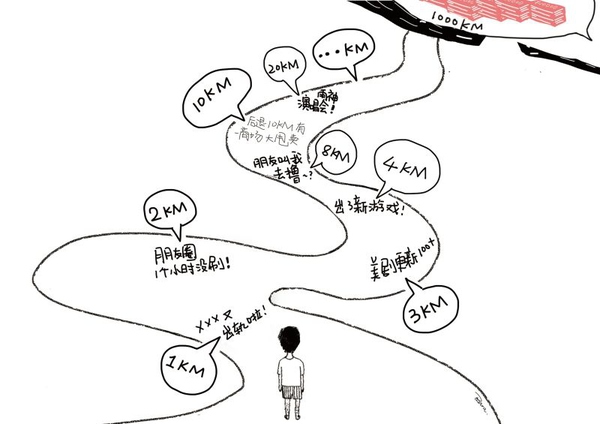 1000KM
...KM
20KM
雨神
演唱会!
10KM
后退10KM有
一商场大甩卖
8KM
朋友叫我
去撸~?
4KM
出了新游戏!
2KM
朋友圈
1个小时没刷!
美剧更新100+
3KM
xxx又
出轨啦!
1KM